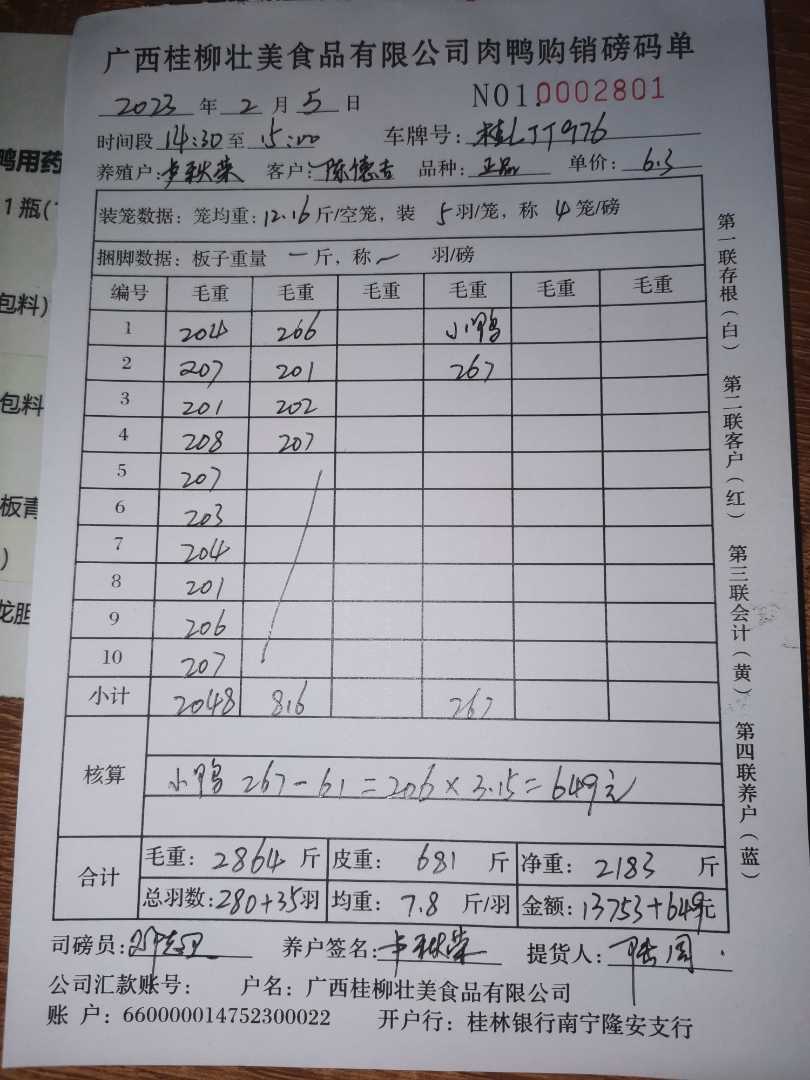 广西桂柳壮美食品有限公司肉鸭购销磅码单
2023 年 2 月 5 日 NO1.0002801
时间段 14:30 至 15:00 车牌号: 桂LJJ976
养殖户: 卢秋荣 客户: 陈德吉 品种: 正品 单价: 6.3
装笼数据: 笼均重: 12.16 斤/空笼, 装 5 羽/笼, 称 4 笼/磅
捆脚数据: 板子重量 一 斤, 称 一 羽/磅
编号 毛重 毛重 毛重 毛重 毛重 毛重
1 204 206 小鸭
2 207 201 267
3 201 202
4 208 207
5 207
6 203
7 204
8 201
9 206
10 207
小计 2048 816 267
核算
小鸭 267-61=206×3.15=649元
合计
毛重: 2864 斤 皮重: 681 斤 净重: 2183 斤
总羽数: 280+35羽 均重: 7.8 斤/羽 金额: 13753+649元
司磅员: 养户签名: 卢秋荣 提货人:
公司汇款账号: 户名: 广西桂柳壮美食品有限公司
账 户: 660000014752300022 开户行: 桂林银行南宁隆安支行
第一联存根(白) 第二联客户(红) 第三联会计(黄) 第四联养户(蓝)
鸭用药
1瓶(
包料)
包料
板青
)
龙胆